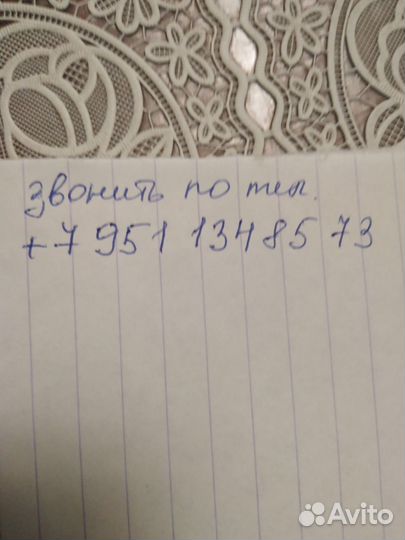 звонить по тел.
+7 951 134 85 73
Avito